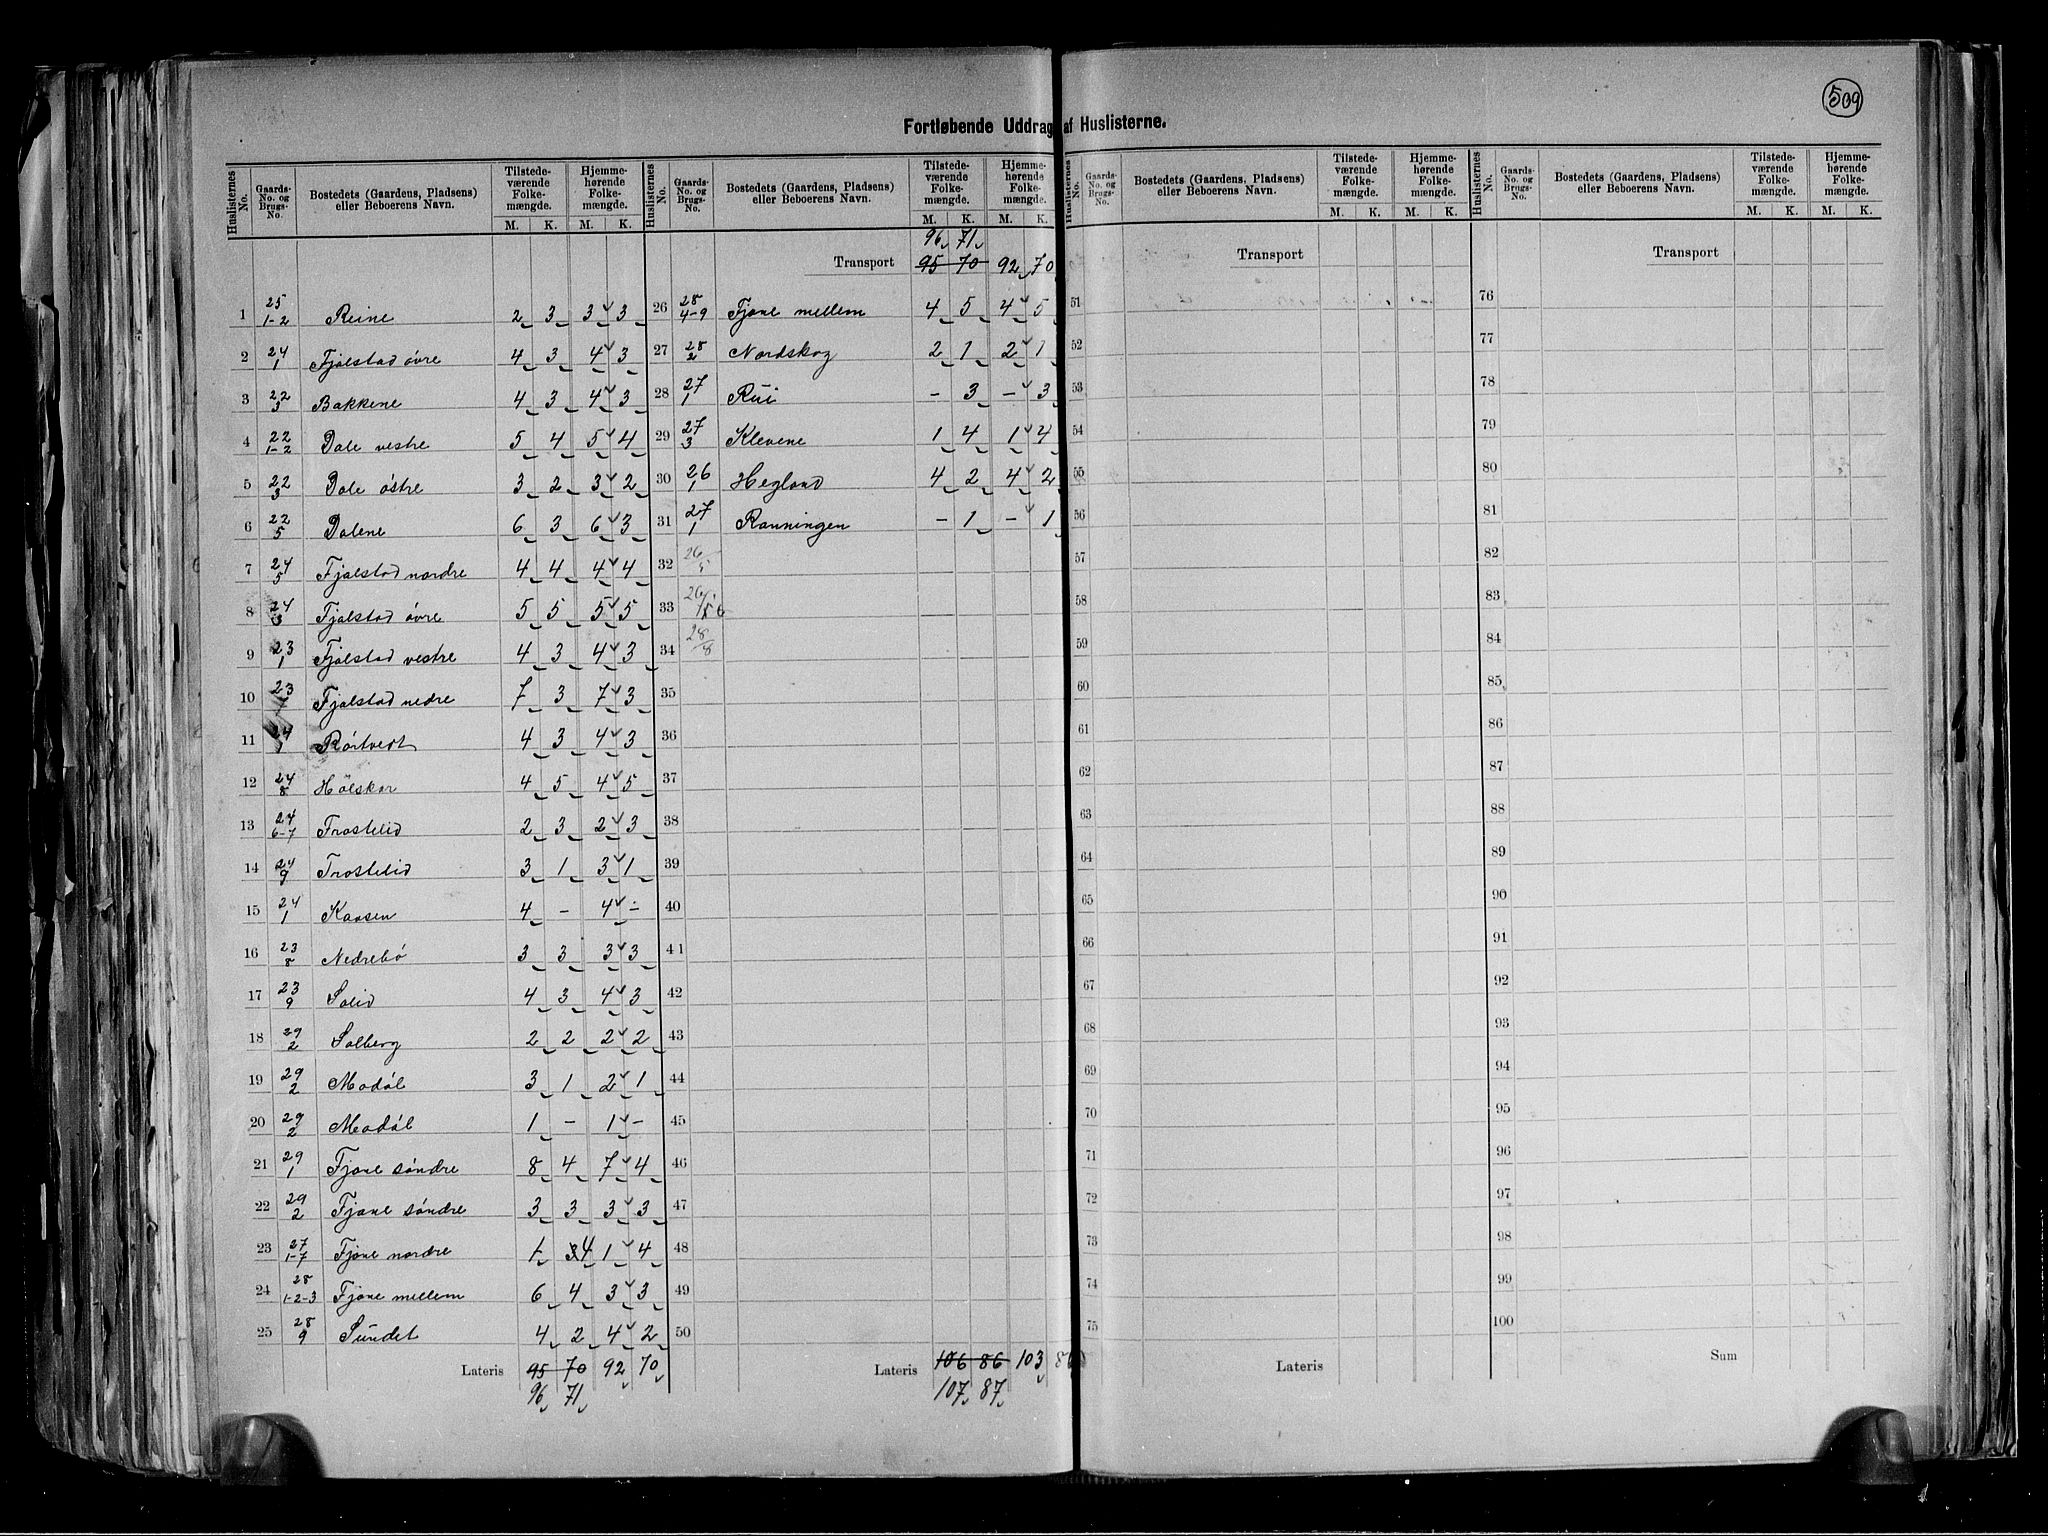 509
Fortløbende Uddrag af Huslisterne.
Huslisternes No. Gaards-No. og Brugs-No. Bostedets (Gaardens, Pladsens) eller Beboerens Navn. Tilstedeværende Folkemængde. M. K. Hjemmehørende Folkemængde. M. K.
1 25 1-2 Reine 2 3 3 3
2 24 1 Fjalestad øvre 4 3 4 3
3 22 3 Bakkene 4 3 4 3
4 22 1-2 Dale vestre 5 4 5 4
5 22 3 Dale østre 3 2 3 2
6 22 5 Dalene 6 3 6 3
7 24 5 Fjalstad nordre 4 4 4 4
8 24 3 Fjalstad øvre 5 5 5 5
9 23 1 Fjalstad vestre 4 3 4 3
10 23 Fjalstad nedre 7 3 7 3
11 24 1 Rørtvedt 4 3 4 3
12 24 8 Hålskar 4 5 4 5
13 24 6-7 Trostelid 2 3 2 3
14 24 9 Trostelid 3 1 3 1
15 24 1 Kaasen 4 - 4 -
16 23 8 Nedrebø 3 3 3 3
17 23 9 Solid 4 3 4 3
18 29 2 Solberg 2 2 2 2
19 29 2 Modøl 3 1 2 1
20 29 2 Modøl 1 - 1 -
21 29 1 Fjone søndre 8 4 7 4
22 29 2 Fjone søndre 3 3 3 3
23 27 1-7 Fjone nordre 1 3 4 1 4
24 28 1-2-3 Fjone mellem 6 4 3 3
25 28 9 Sundet 4 2 4 2
Lateris 95 70 92 70
96 71
Huslisternes No. Gaards-No. og Brugs-No. Bostedets (Gaardens, Pladsens) eller Beboerens Navn. Tilstedeværende Folkemængde. M. K. Hjemmehørende Folkemængde. M. K.
96 71
Transport 95 70 92 70
26 28 4-9 Fjone mellem 4 5 4 5
27 28 2 Nordskog 2 1 2 1
28 27 1 Rui - 3 - 3
29 27 3 Klevene 1 4 1 4
30 26 1 Hegland 4 2 4 2
31 27 1 Ronningen - 1 - 1
32 26
33 26
34 28/8
35
36
37
38
39
40
41
42
43
44
45
46
47
48
49
50
Lateris 106 86 103 86
107 87
Huslisternes No. Gaards-No. og Brugs-No. Bostedets (Gaardens, Pladsens) eller Beboerens Navn. Tilstedeværende Folkemængde. M. K. Hjemmehørende Folkemængde. M. K.
Transport
51
52
53
54
55
56
57
58
59
60
61
62
63
64
65
66
67
68
69
70
71
72
73
74
75
Lateris
Huslisternes No. Gaards-No. og Brugs-No. Bostedets (Gaardens, Pladsens) eller Beboerens Navn. Tilstedeværende Folkemængde. M. K. Hjemmehørende Folkemængde. M. K.
Transport
76
77
78
79
80
81
82
83
84
85
86
87
88
89
90
91
92
93
94
95
96
97
98
99
100
Sum